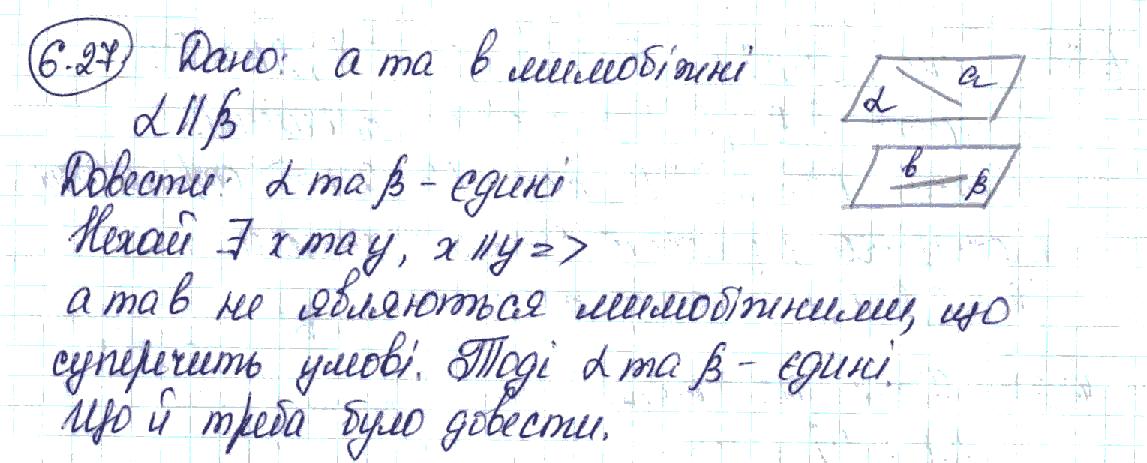 6.27 Дано: а та в мимобіжні
α || β
Довести: α та β – єдині
Нехай ∃ x та y, x || y =>
а та в не являються мимобіжними, що
суперечить умові. Тоді α та β – єдині.
Що й треба було довести.
α a
в β